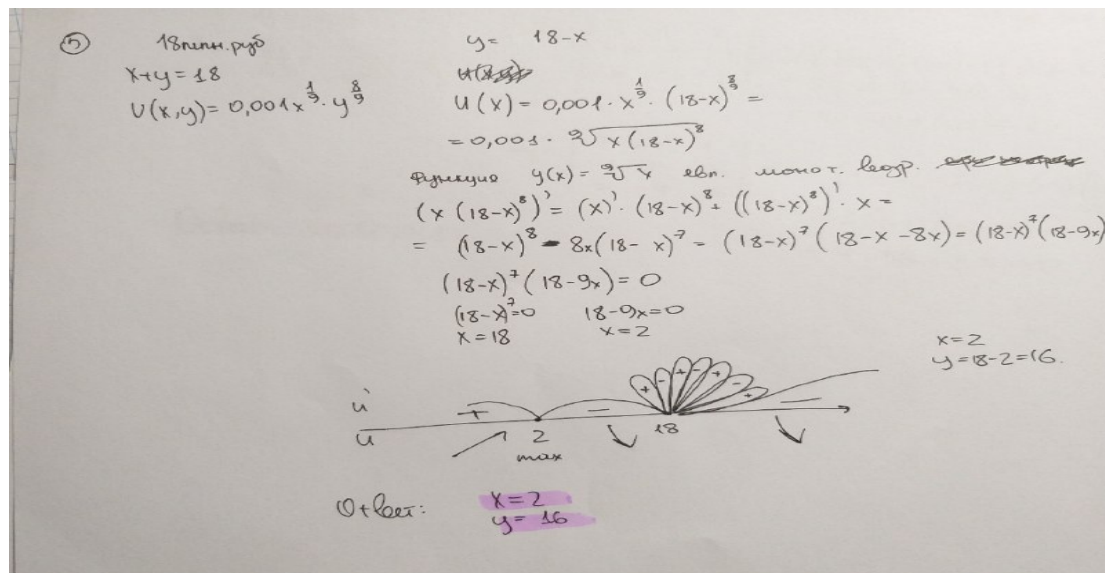 ⑤ 18 млн. руб
x+y=18
U(x,y)=0,001x^{1/9}·y^{8/9}
y= 18-x
U(x)=0,001·x^{1/9}·(18-x)^{8/9}=
=0,001·⁹√x(18-x)⁸
Функция y(x)=⁹√x явл. монот. возр.
(x(18-x)⁸)'=(x)'·(18-x)⁸+((18-x)⁸)'·x=
= (18-x)⁸-8x(18-x)⁷=(18-x)⁷(18-x-8x)=(18-x)⁷(18-9x)
(18-x)⁷(18-9x)=0
(18-x)⁷=0 18-9x=0
x=18 x=2
x=2
y=18-2=16.
+ - + - + - +
u' + - -
u 2 18
max
Ответ: x=2
y=16